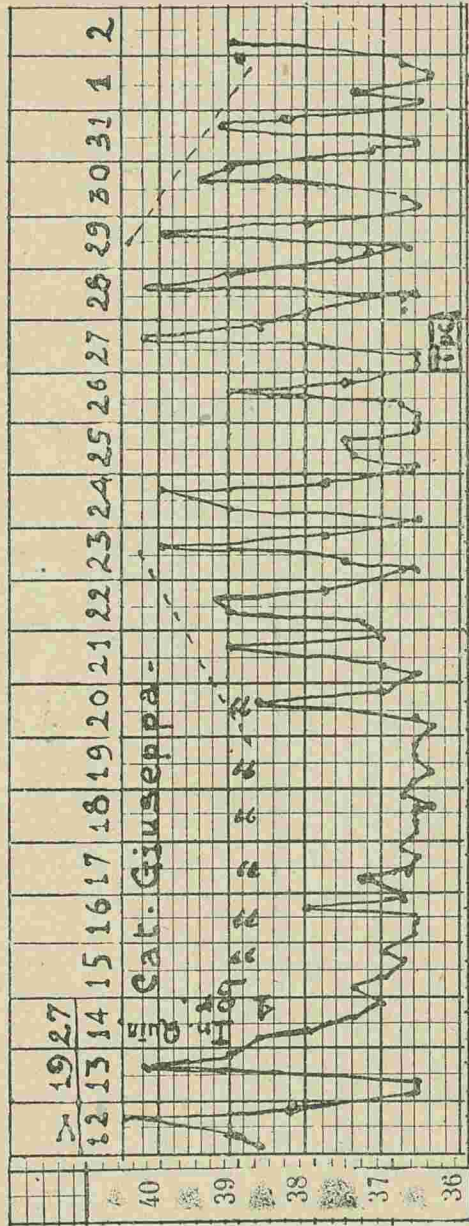 1927
12 13 14 15 16 17 18 19 20 21 22 23 24 25 26 27 28 29 30 31 1 2
Cat. Giuseppa.
40
39
" " " " " "
38
37
36